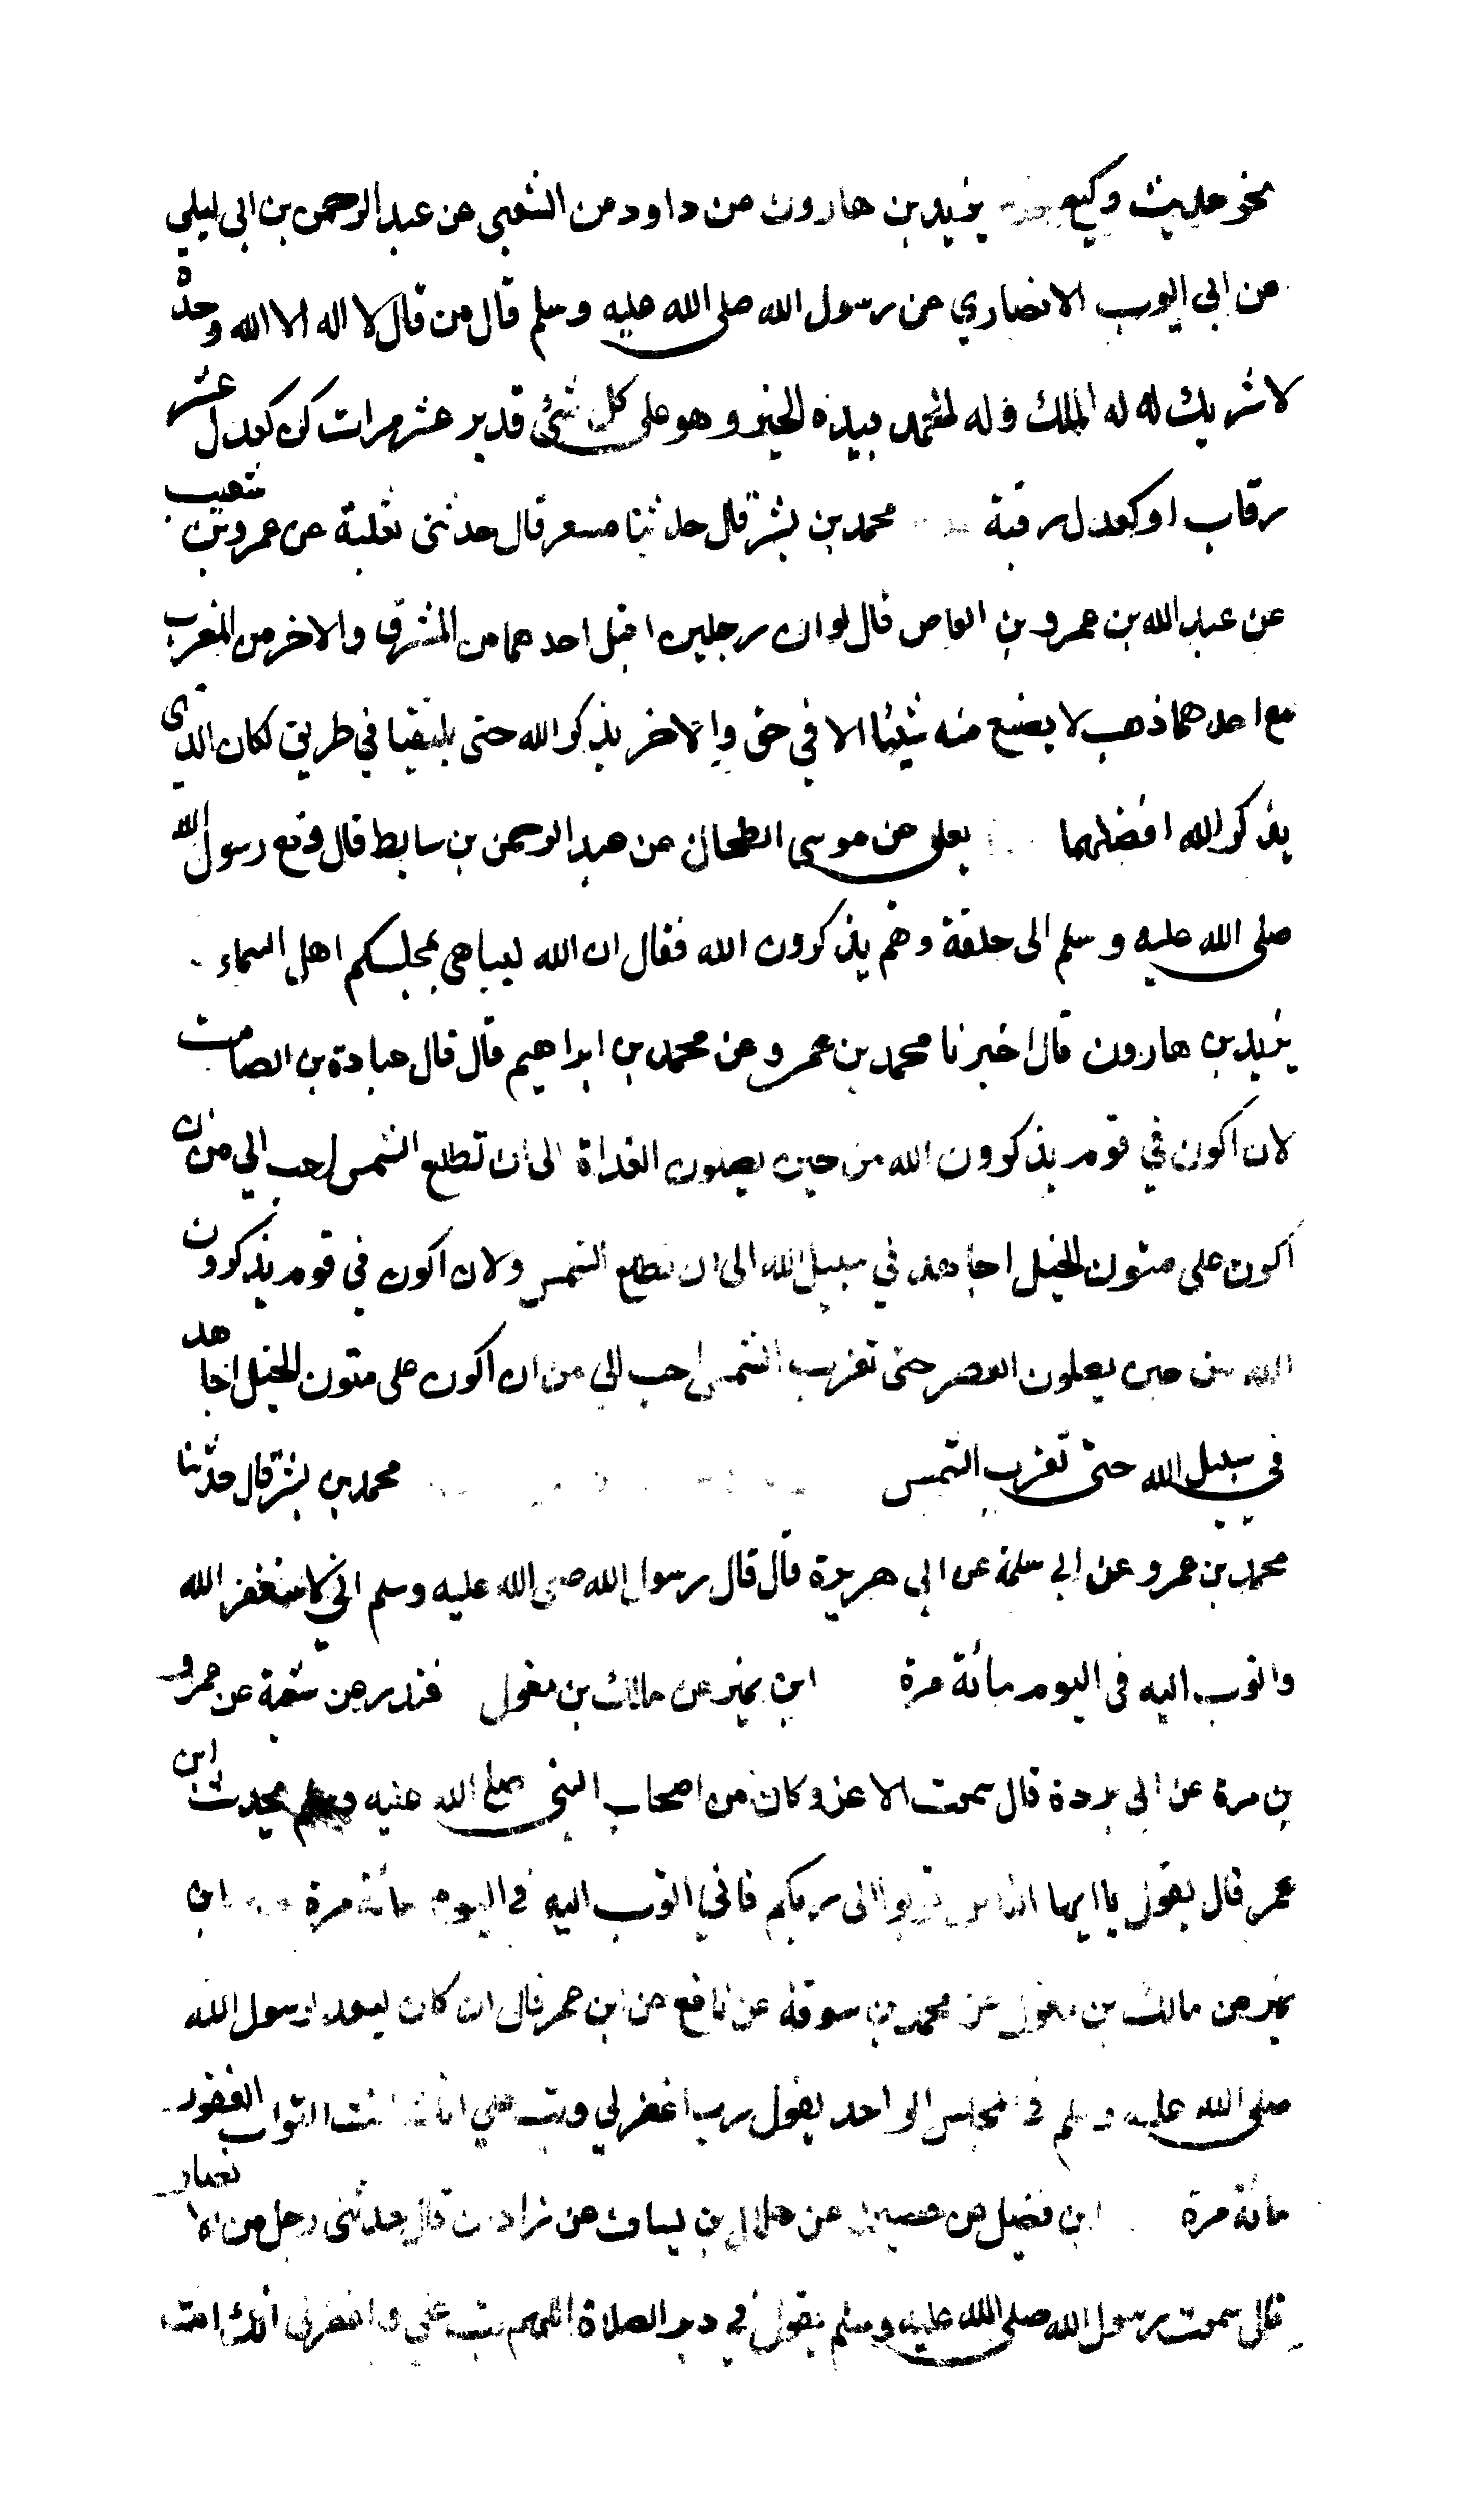 نحو حديث وكيع يزيد بن هارون عن داود عن الشعبي عن عبد الرحمن بن ابي ليلى
عن ابي ايوب الانصاري عن رسول الله صلى الله عليه وسلم قال من قال لا اله الا الله وحده
لا شريك له له الملك وله الحمد بيده الخير وهو على كل شئ قدير عشر مرات كن كعدل عشر
رقاب او كعدل رقبة محمد بن بشر قال حدثنا مسعر قال حدثنى ثعلبة عن عمرو بن شعيب
عن عبد الله بن عمرو بن العاص قال لو ان رجلين اقبل احدهما من المشرق والاخر من المغرب
مع احدهما ذهب لا يضع منه شيئا الا في حق والاخر يذكر الله حتى يلتقيا في طريق لكان الذى
يذكر الله افضلهما يعلى عن موسى الطحان عن عبد الرحمن بن سابط قال وقع رسول الله
صلى الله عليه وسلم الى حلقة وهم يذكرون الله فقال ان الله ليباهي بمجلسكم اهل السماء
يزيد بن هارون قال اخبرنا محمد بن عمرو عن محمد بن ابراهيم قال قال عبادة بن الصامت
لان اكون في قوم يذكرون الله من حين يصلون الغداة الى ان تطلع الشمس احب الي من ان
اكون على متون الخيل اجاهد في سبيل الله الى ان تطلع الشمس ولان اكون في قوم يذكرون
الله من حين يصلون العصر حتى تغرب الشمس احب الي من ان اكون على متون الخيل اجاهد
في سبيل الله حتى تغرب الشمس محمد بن بشر قال حدثنا
محمد بن عمرو عن ابي سلمة عن ابي هريرة قال قال رسول الله صلى الله عليه وسلم اني لاستغفر الله
واتوب اليه في اليوم مائة مرة ابن نمير عن مالك بن مغول غندر عن شعبة عن عمرو
بن مرة عن ابي بردة قال سمعت الاغر وكان من اصحاب النبي صلى الله عليه وسلم يحدث ابن
عمر قال يقول يا ايها الناس توبوا الى ربكم فاني اتوب اليه في اليوم مائة مرة ابن
نمير عن مالك بن مغول عن محمد بن سوقة عن نافع عن ابن عمر قال ان كان ليعد لرسول الله
صلى الله عليه وسلم في المجلس الواحد يقول رب اغفر لي وتب علي انك انت التواب الغفور
مائة مرة ابن فضيل عن حصين عن هلال بن يساف عن زاذان قال حدثنى رجل من الانصار
قال سمعت رسول الله صلى الله عليه وسلم يقول في دبر الصلاة اللهم تب علي واغفر لي انك انت